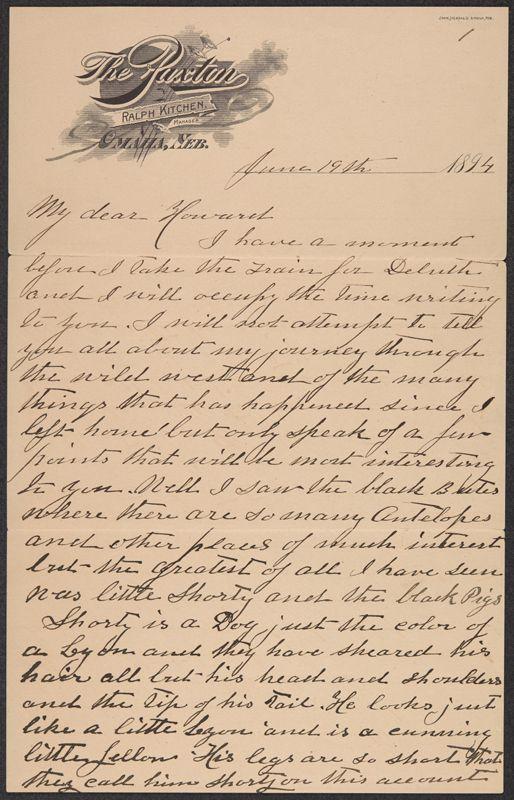 JOHN 
1
The Paxton
RALPH KITCHEN,
MANAGER
OMAHA, NEB.
June 19th 1894
My dear Howard
I have a moment
before I take the train for Deluth
and I will occupy the time writing
to you. I will not attempt to tell
you all about my journey through
the wild west and of the many
things that has happened since I
left home but only speak of a few
points that will be most interesting
to you. Well I saw the black Butes
where there are so many Antelopes
and other places of much interest
but the greatest of all I have seen
was little Shorty and the black Pigs
Shorty is a Dog just the color of
a Lyon and they have sheared his
hair all but his head and shoulders
and the tip of his tail. He looks just
like a little Lyon and is a cunning
little fellow His legs are so short that
they call him shorty on this account